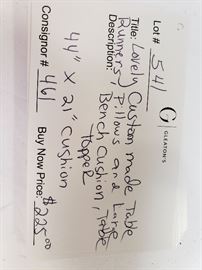 Lot # 541
G | GLEATON'S
Title: Lovely Custom made Table
Runners, Pillows and Large
Description: Bench Cushion, Table
Topper
44" X 21" Cushion
Consignor # 461 Buy Now Price: $225.00